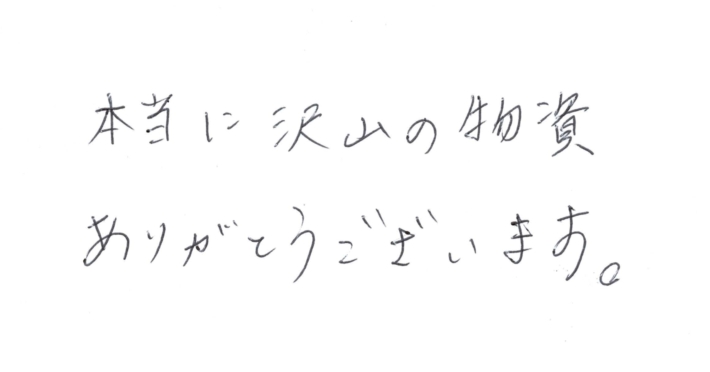 本当に沢山の物資
ありがとうございます。